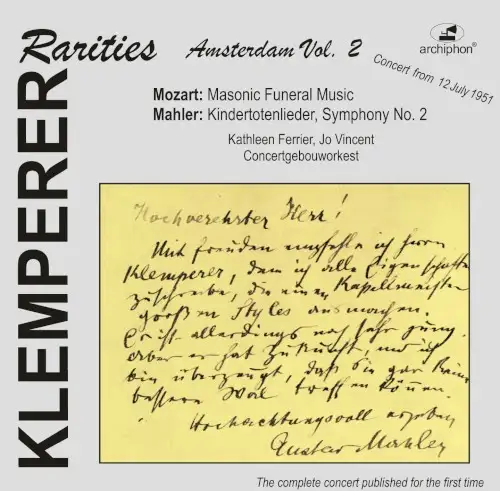 KLEMPERER
Rarities
Amsterdam Vol. 2
archiphon®
Concert from 12 July 1951
Mozart: Masonic Funeral Music
Mahler: Kindertotenlieder, Symphony No. 2
Kathleen Ferrier, Jo Vincent
Concertgebouworkest
Hochverehrter Herr!
Mit Freuden empfehle ich Herrn
Klemperer, dem ich alle Eigenschaften
zuschreibe, die einen Kapellmeister
großen Styles ausmachen.
Er ist allerdings noch sehr jung.
Aber er hat Zukunft, und ich
bin überzeugt, daß Sie gar keine
bessere Wahl treffen können.
Hochachtungsvoll ergeben
Gustav Mahler
The complete concert published for the first time